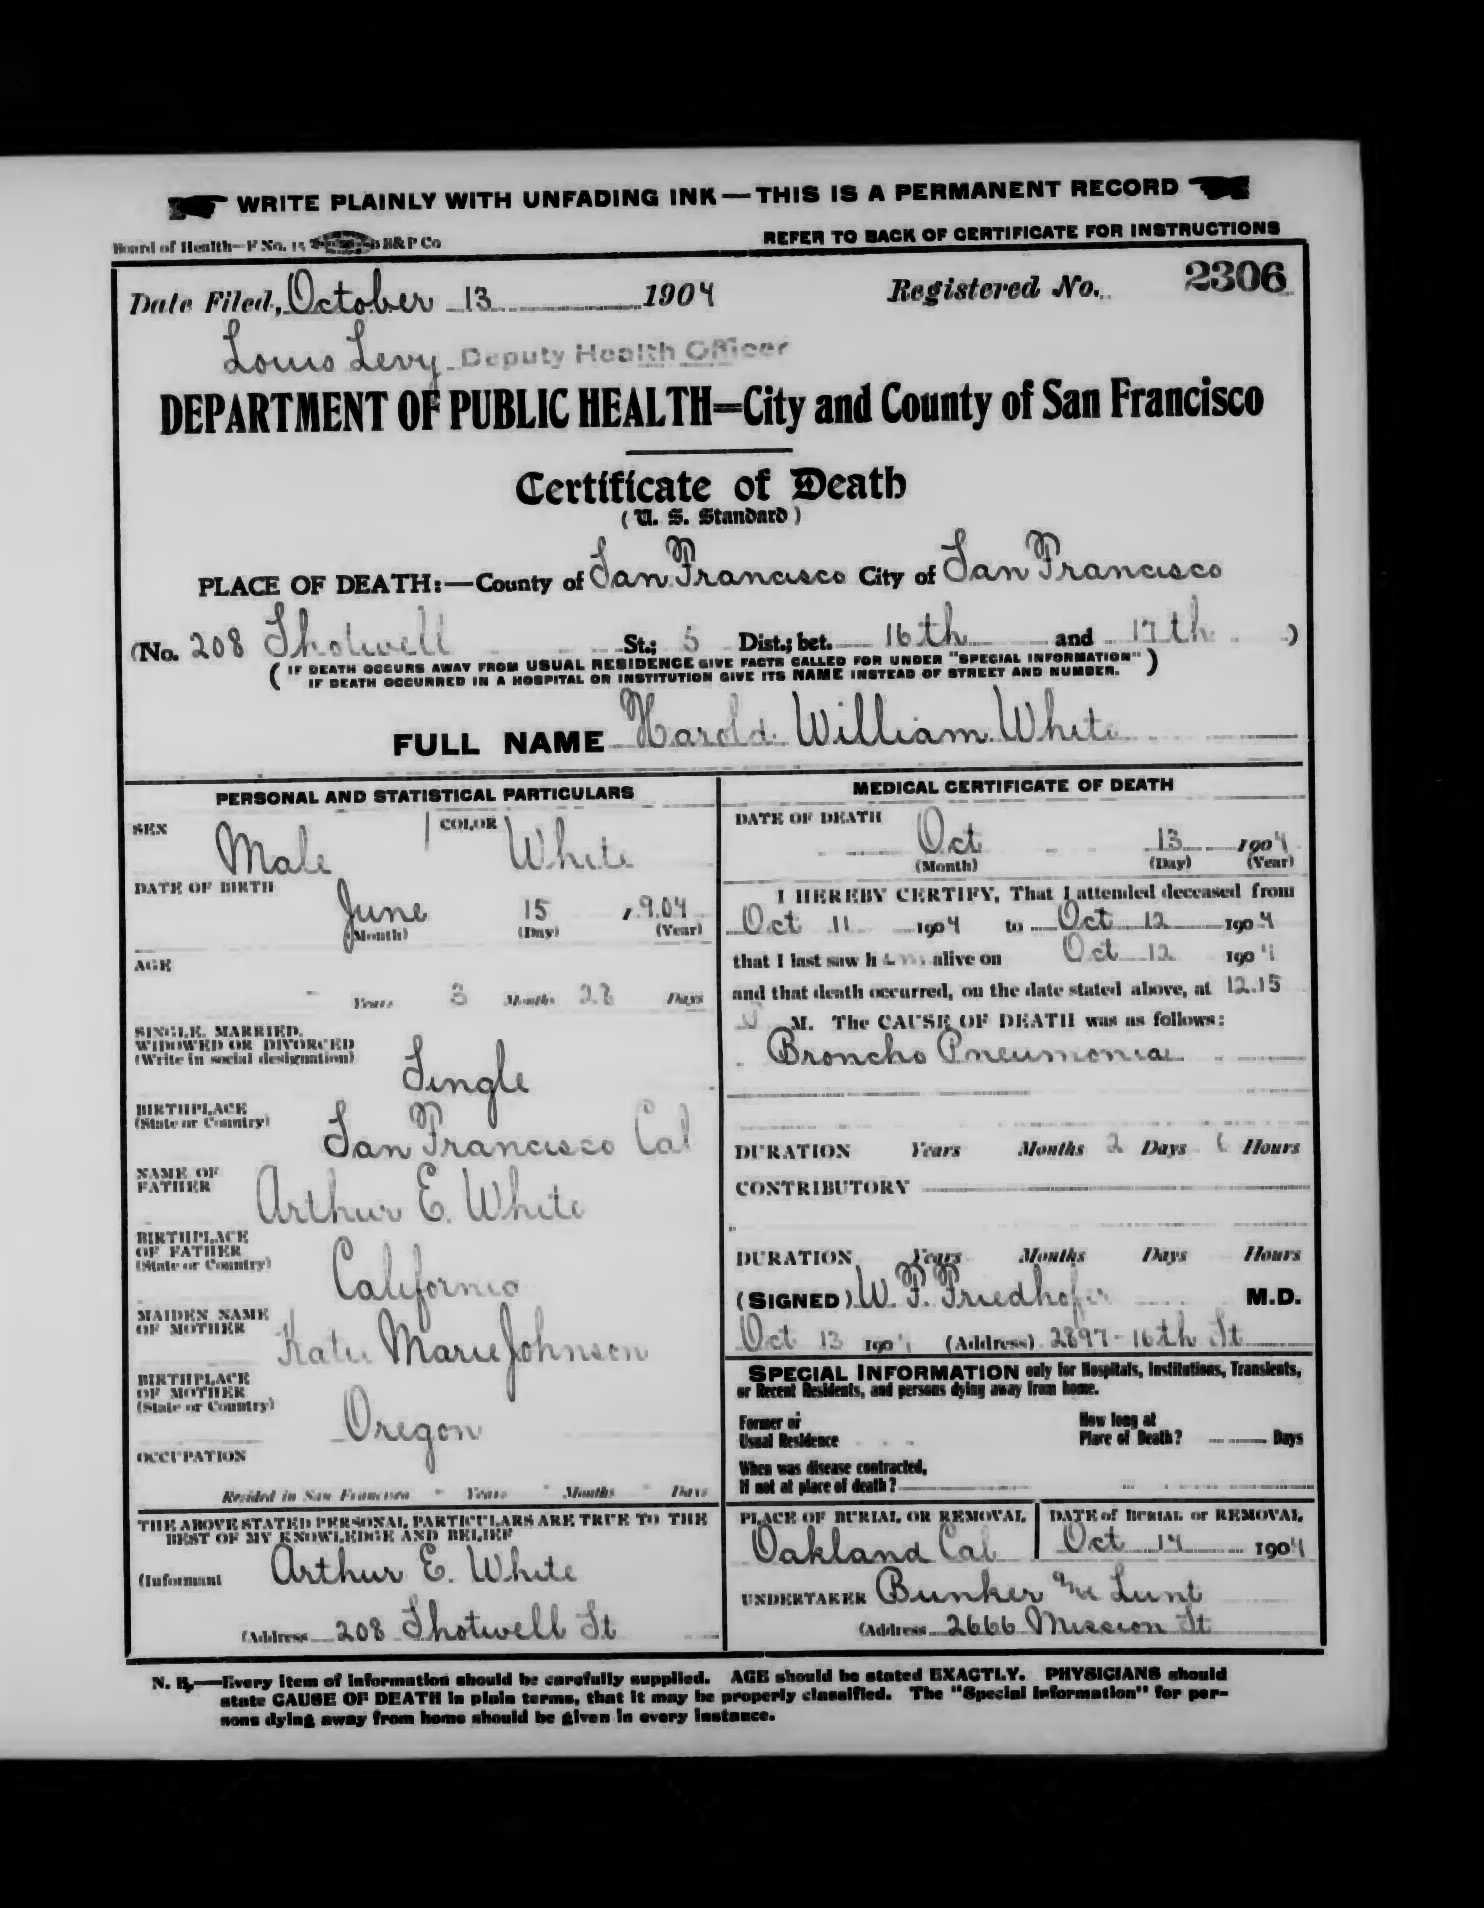 WRITE PLAINLY WITH UNFADING INK—THIS IS A PERMANENT RECORD
Board of Health—F No. 15 B&P Co
REFER TO BACK OF CERTIFICATE FOR INSTRUCTIONS
Date Filed, October 13 1904 Registered No. 2306
Louis Levy Deputy Health Officer
DEPARTMENT OF PUBLIC HEALTH=City and County of San Francisco
Certificate of Death
(U. S. Standard)
PLACE OF DEATH:—County of San Francisco City of San Francisco
(No. 208 Shotwell St.; 5 Dist.; bet. 16th and 17th )
( IF DEATH OCCURS AWAY FROM USUAL RESIDENCE GIVE FACTS CALLED FOR UNDER "SPECIAL INFORMATION" )
IF DEATH OCCURRED IN A HOSPITAL OR INSTITUTION GIVE ITS NAME INSTEAD OF STREET AND NUMBER.
FULL NAME Harold William White
PERSONAL AND STATISTICAL PARTICULARS
SEX Male COLOR White
DATE OF BIRTH
June 15 1904
(Month) (Day) (Year)
AGE
- Years 3 Months 28 Days
SINGLE, MARRIED,
WIDOWED OR DIVORCED
(Write in social designation)
Single
BIRTHPLACE
(State or Country)
San Francisco Cal
NAME OF
FATHER
Arthur E. White
BIRTHPLACE
OF FATHER
(State or Country)
California
MAIDEN NAME
OF MOTHER
Katie Marie Johnson
BIRTHPLACE
OF MOTHER
(State or Country)
Oregon
OCCUPATION
Resided in San Francisco - Years - Months - Days
THE ABOVE STATED PERSONAL PARTICULARS ARE TRUE TO THE
BEST OF MY KNOWLEDGE AND BELIEF
(Informant Arthur E. White
(Address 208 Shotwell St
MEDICAL CERTIFICATE OF DEATH
DATE OF DEATH
Oct 13 1904
(Month) (Day) (Year)
I HEREBY CERTIFY, That I attended deceased from
Oct 11 1904 to Oct 12 1904
that I last saw h im alive on Oct 12 1904
and that death occurred, on the date stated above, at 12.15
M. The CAUSE OF DEATH was as follows:
Broncho Pneumonia
DURATION Years Months 2 Days 6 Hours
CONTRIBUTORY
DURATION Years Months Days Hours
(SIGNED) W. F. Friedhofer M.D.
Oct 13 1904 (Address) 2897-16th St
SPECIAL INFORMATION only for Hospitals, Institutions, Transients,
or Recent Residents, and persons dying away from home.
Former or
Usual Residence
How long at
Place of Death? Days
When was disease contracted,
If not at place of death?
PLACE OF BURIAL OR REMOVAL
Oakland Cal
DATE of BURIAL or REMOVAL
Oct 14 1904
UNDERTAKER Bunker and Lunt
(Address 2666 Mission St
N. B.—Every item of information should be carefully supplied. AGE should be stated EXACTLY. PHYSICIANS should
state CAUSE OF DEATH in plain terms, that it may be properly classified. The "Special Information" for per-
sons dying away from home should be given in every instance.